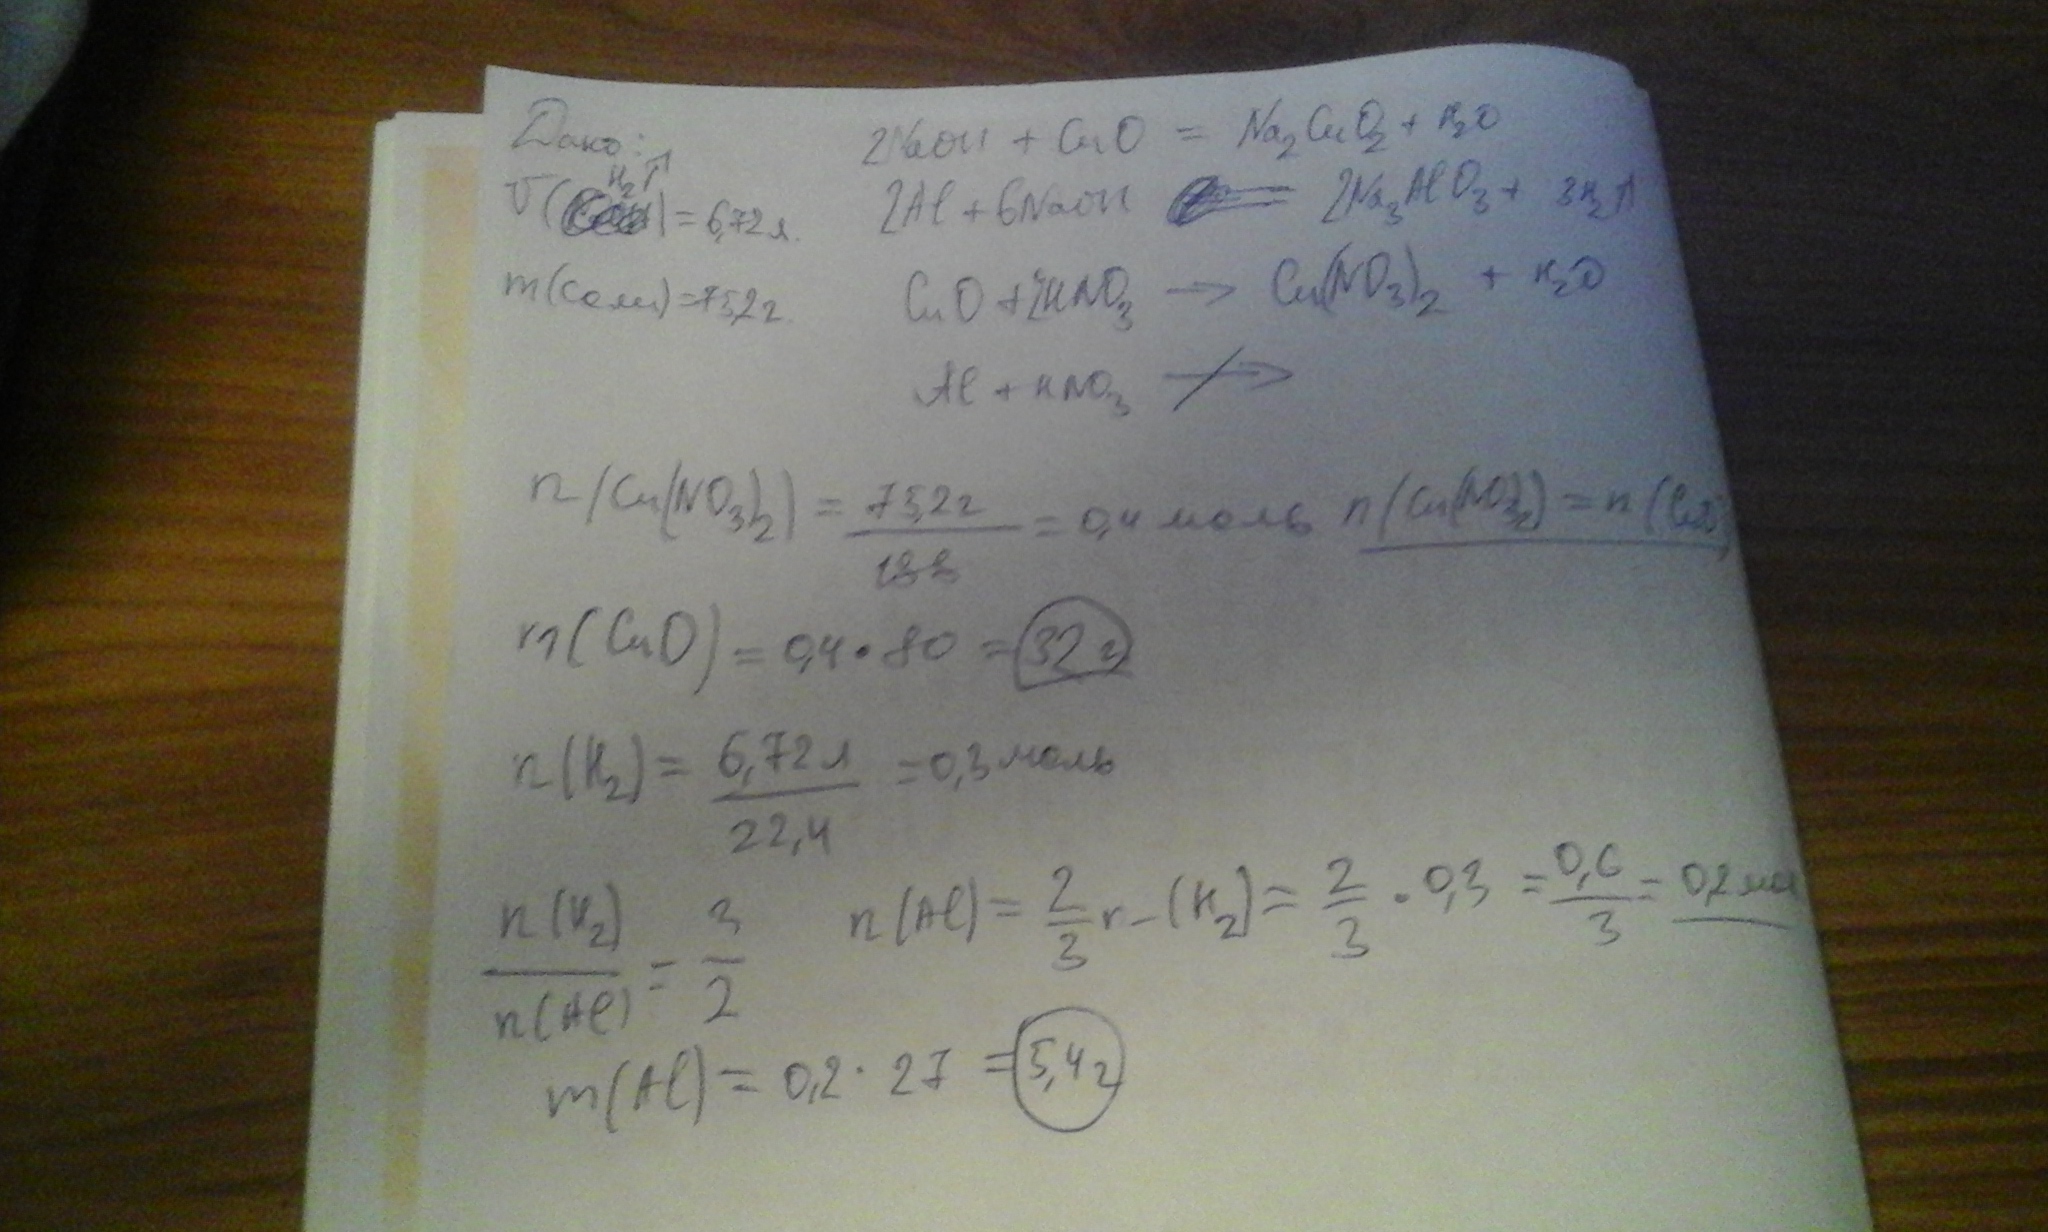 Дано:
V(H₂↑) = 6,72 л.
m(соли) = 75,2 г.
2NaOH + CuO = Na₂CuO₂ + H₂O
2Al + 6NaOH = 2Na₃AlO₃ + 3H₂↑
CuO + 2HNO₃ → Cu(NO₃)₂ + H₂O
Al + HNO₃ ↛
n(Cu(NO₃)₂) = 75,2 г / 188 = 0,4 моль n(Cu(NO₃)₂) = n(CuO)
m(CuO) = 0,4 · 80 = 32 г
n(H₂) = 6,72 л / 22,4 = 0,3 моль
n(H₂) / n(Al) = 3 / 2 n(Al) = 2/3 n(H₂) = 2/3 · 0,3 = 0,6/3 = 0,2 мол
m(Al) = 0,2 · 27 = 5,4 г